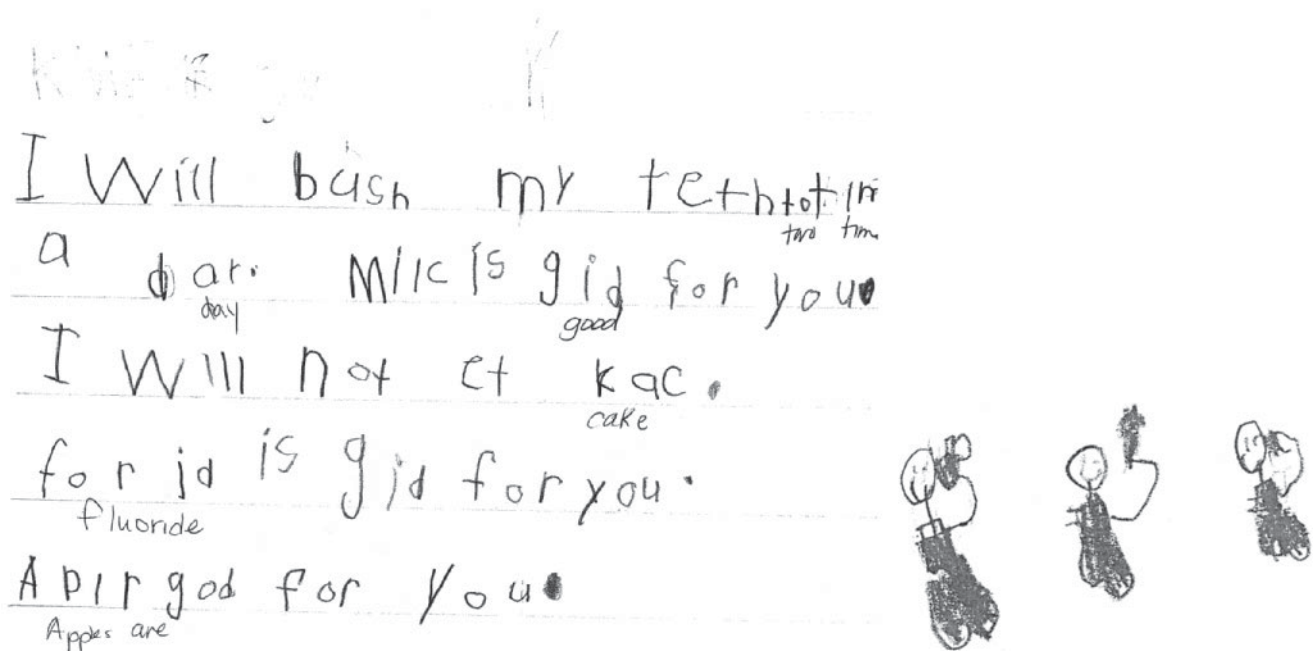 I Will bash my teth tot im
two time
a dar. Milc is gid for you.
day good
I Will not et kac.
cake
for id is gid for you.
fluoride
A plr god for you.
Apples are